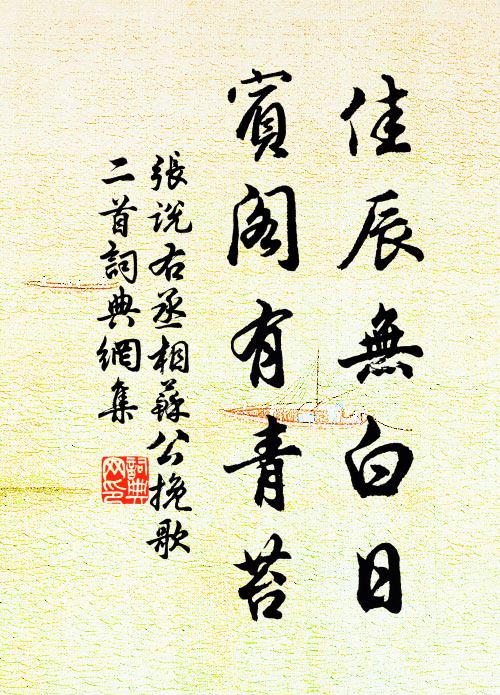 佳辰無白日
賓閣有青苔
張說右丞相蘇公挽歌
二首詞典網集
詞典網印